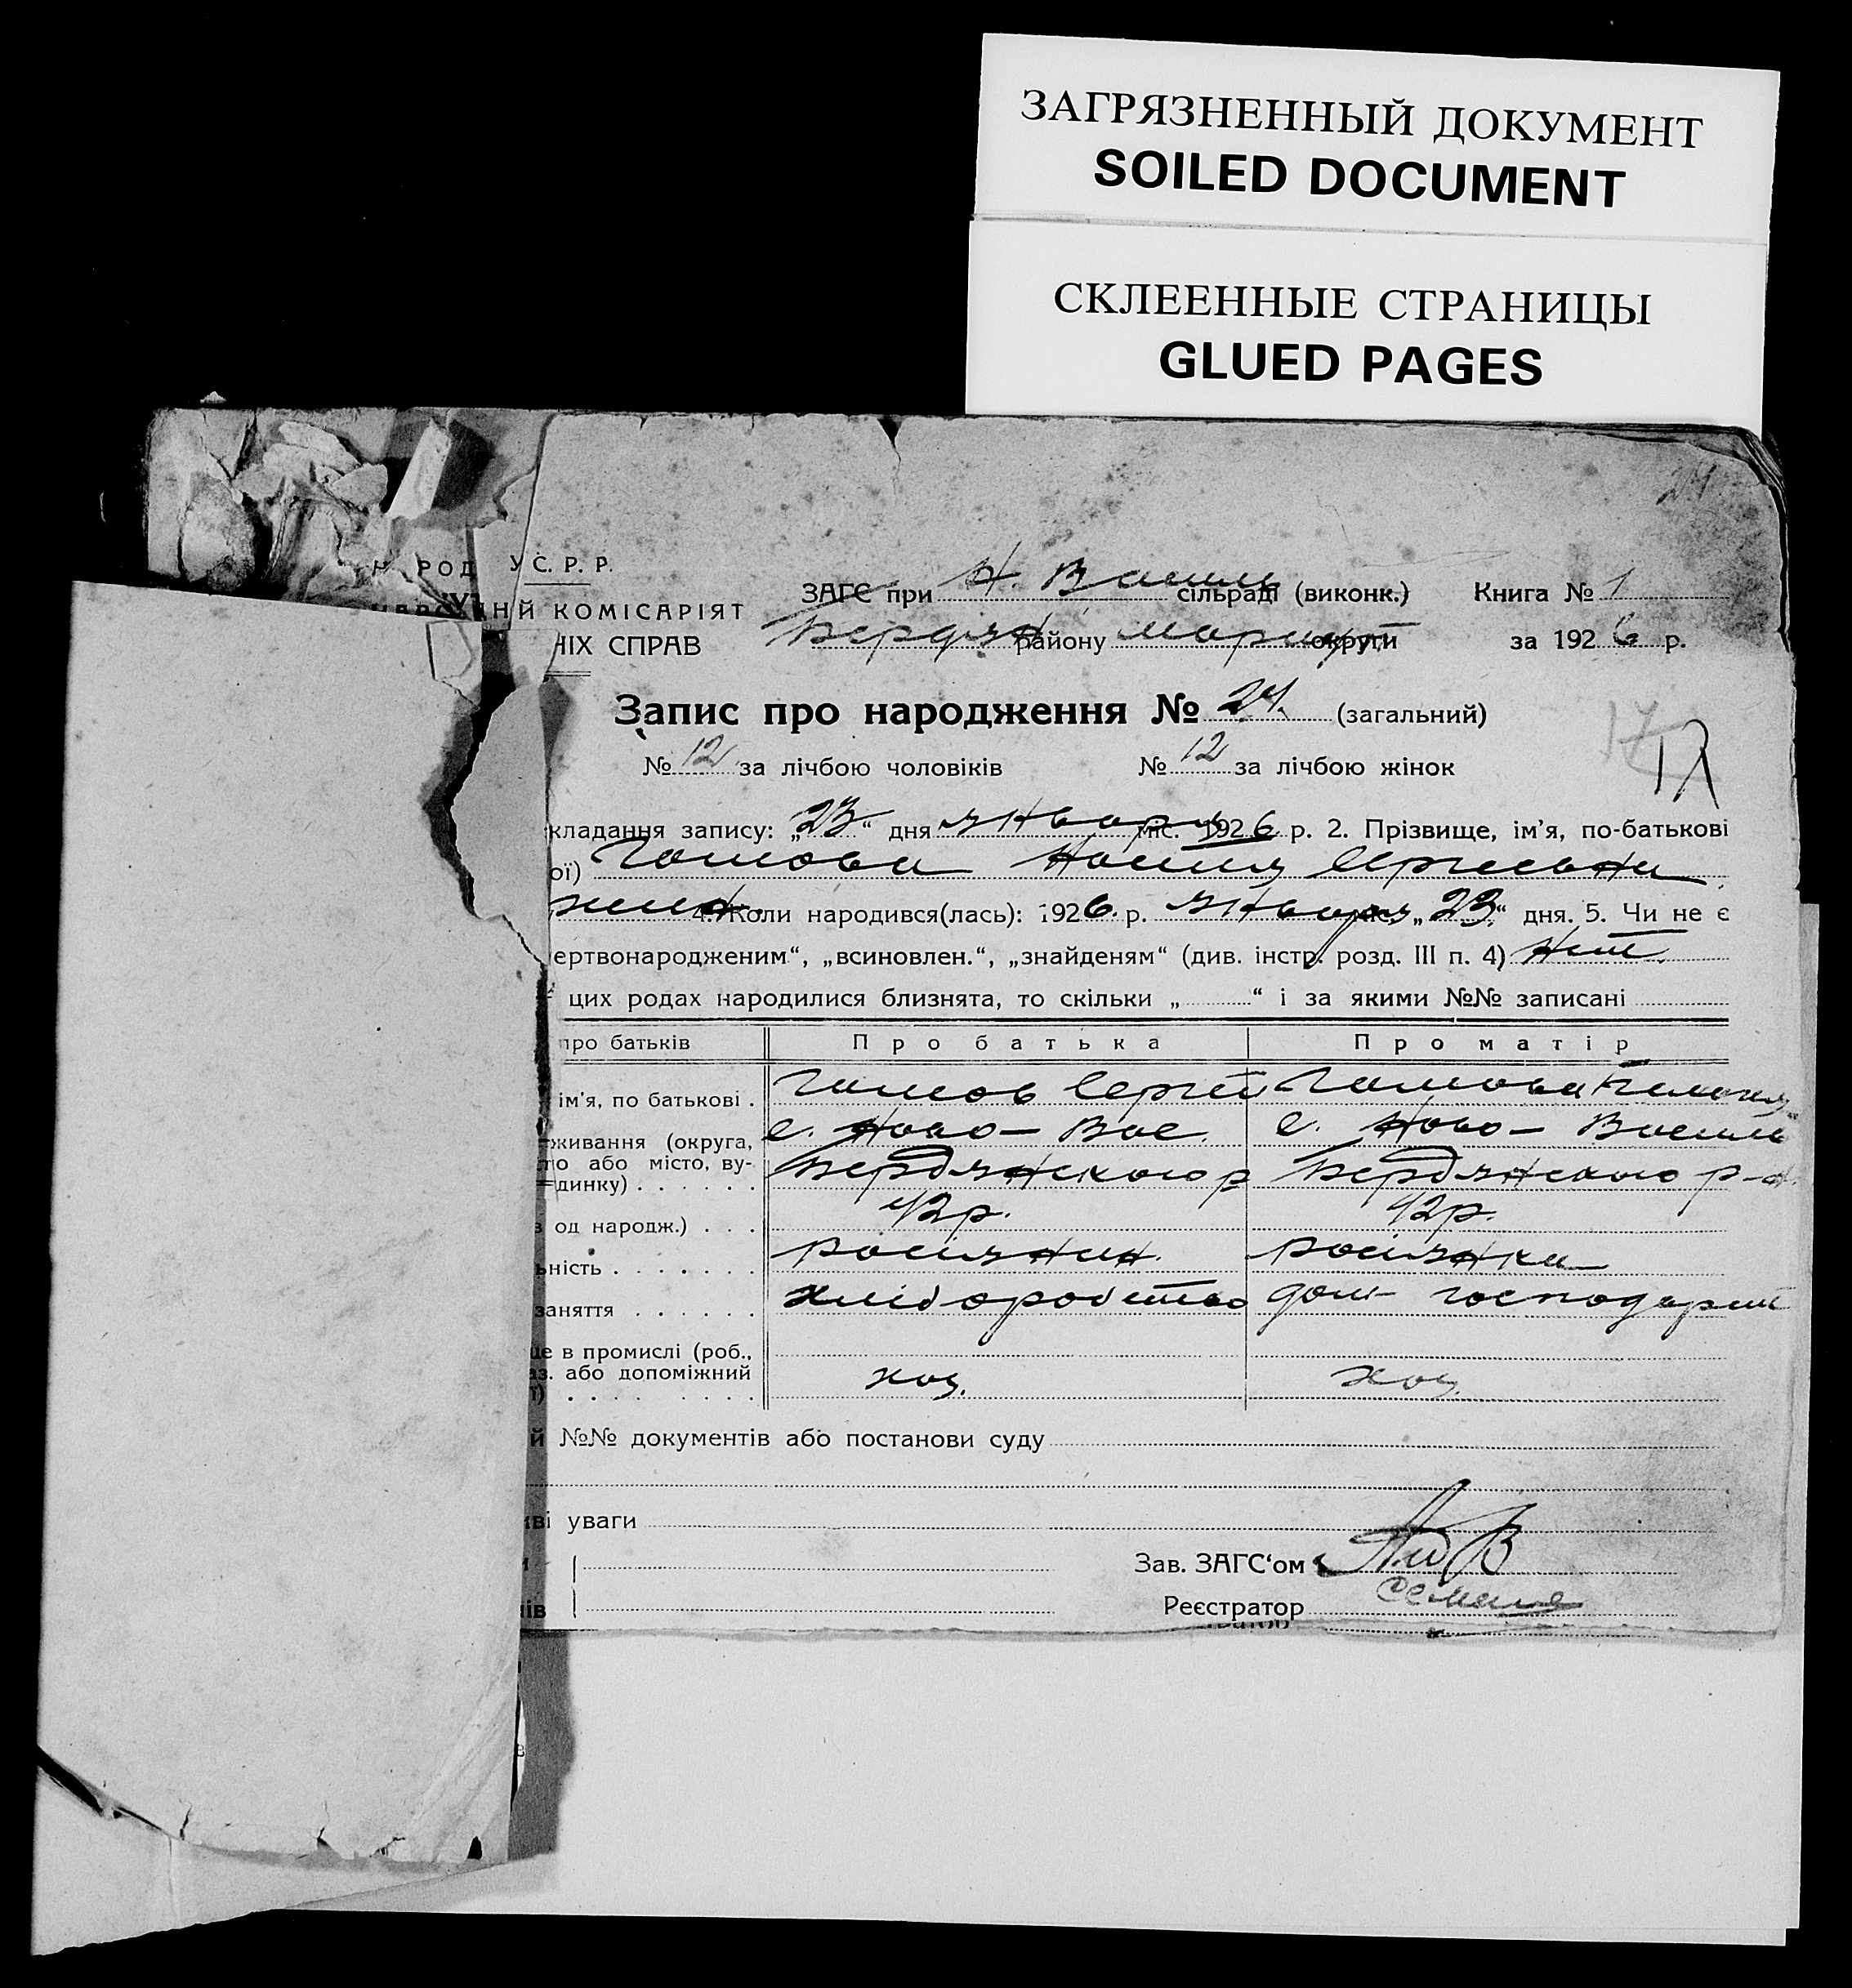 ЗАГРЯЗНЕННЫЙ ДОКУМЕНТ
SOILED DOCUMENT
СКЛЕЕННЫЕ СТРАНИЦЫ
GLUED PAGES
24
У С. Р. Р.
КОМІСАРІЯТ
НІХ СПРАВ
ЗАГС при Н. Василь сільраді (виконк.) Книга № 1
Бердян району Маріуп округи за 1926 р.
Запис про народження № 24. (загальний)
№ 12 за лічбою чоловіків № 12 за лічбою жінок
кладання запису: „23“ дня января міс. 1926 р. 2. Прізвище, ім’я, по-батькові
ої) Сергеевна
жен. 4. Коли народився(лась): 1926. р. января міс. „23.“ дня. 5. Чи не є
ертвонародженим“, „всиновлен.“, „знайденям“ (див. інстр. розд. III п. 4) нет.
цих родах народилися близнята, то скільки „ “ і за якими №№ записані
про батьків Про батька Про матір
ім’я, по батькові . Сергей
живання (округа, с. Ново- Вас. с. Ново- Василь
то або місто, ву-
динку) . . . . . . Бердянського р Бердянського р-н.
од народж.) . . . 42 р. 42 р.
ьність . . . . . . . росіянин. росіянка
заняття . . . . . хліборобство дом господарст
це в промислі (роб.,
аз. або допоміжний хоз. хоз.
ї) . . . . . . .
й №№ документів або постанови суду
ві уваги
Зав. ЗАГС‘ом
ів Реєстратор